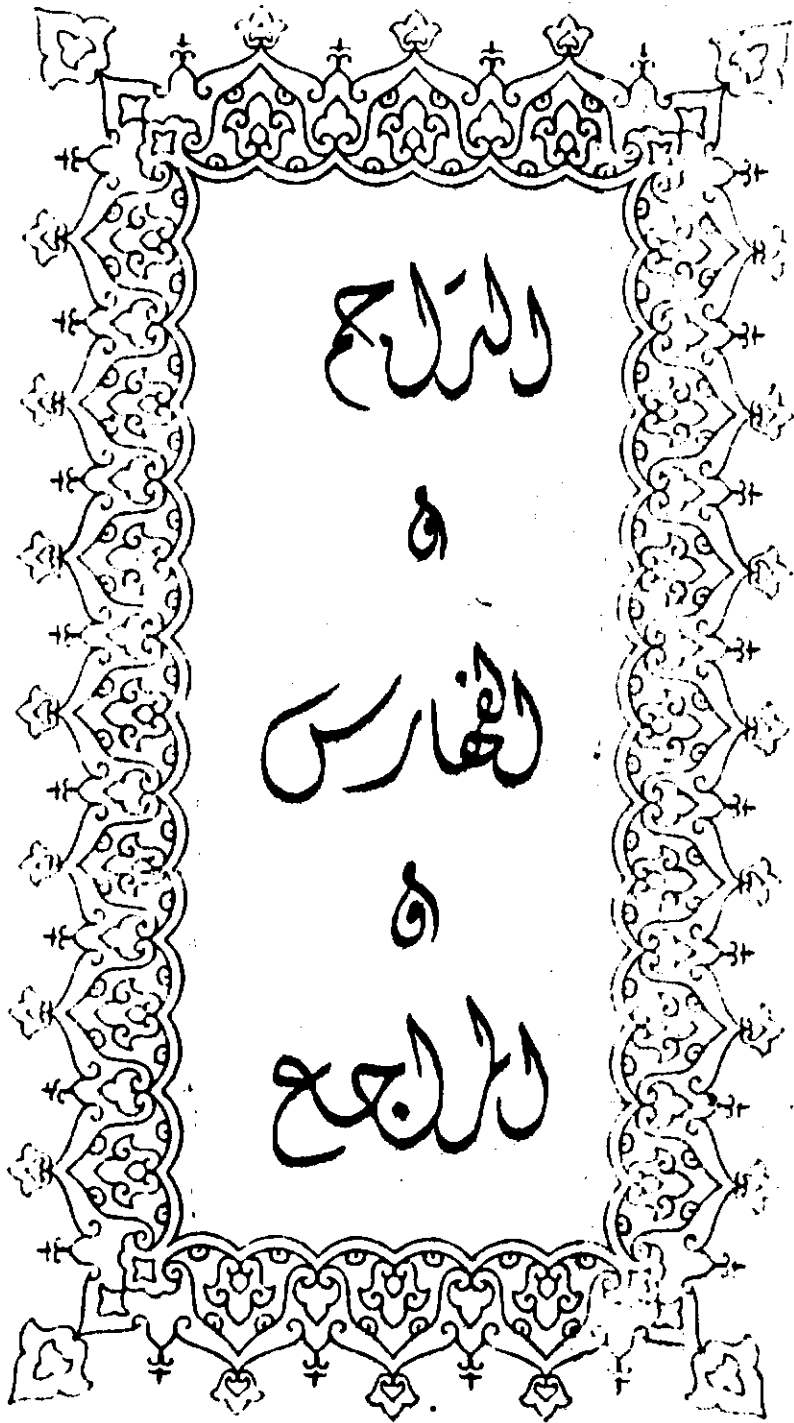 التراجم
و
الفهارس
و
المراجع